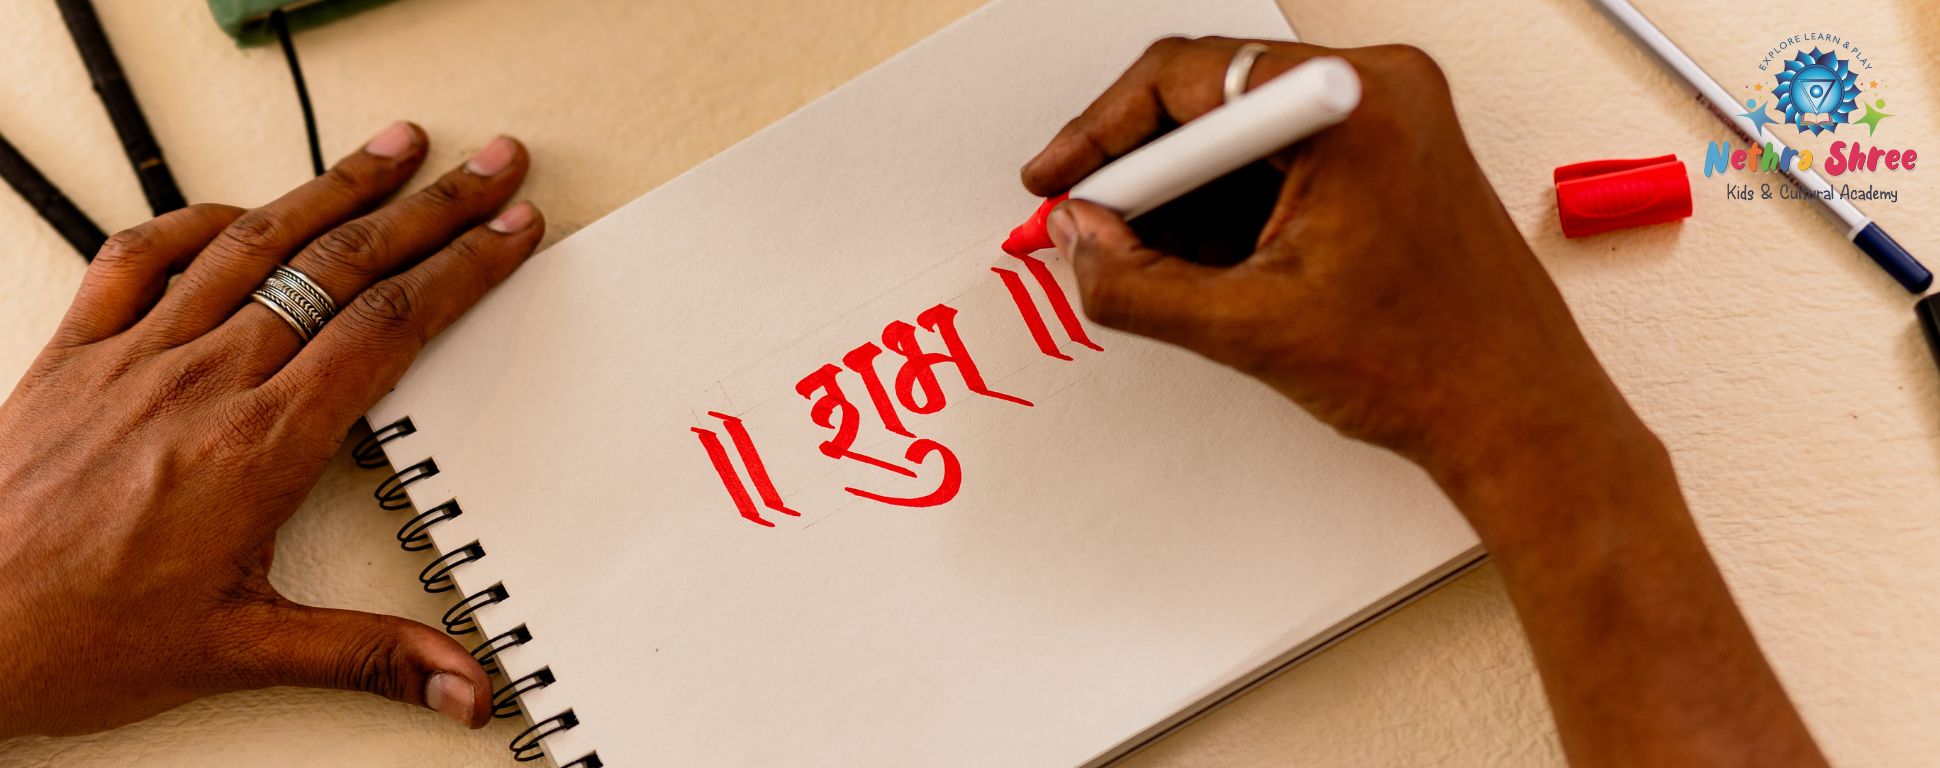 ॥ शुभ ॥
EXPLORE LEARN & PLAY
Nethra Shree
Kids & Cultural Academy